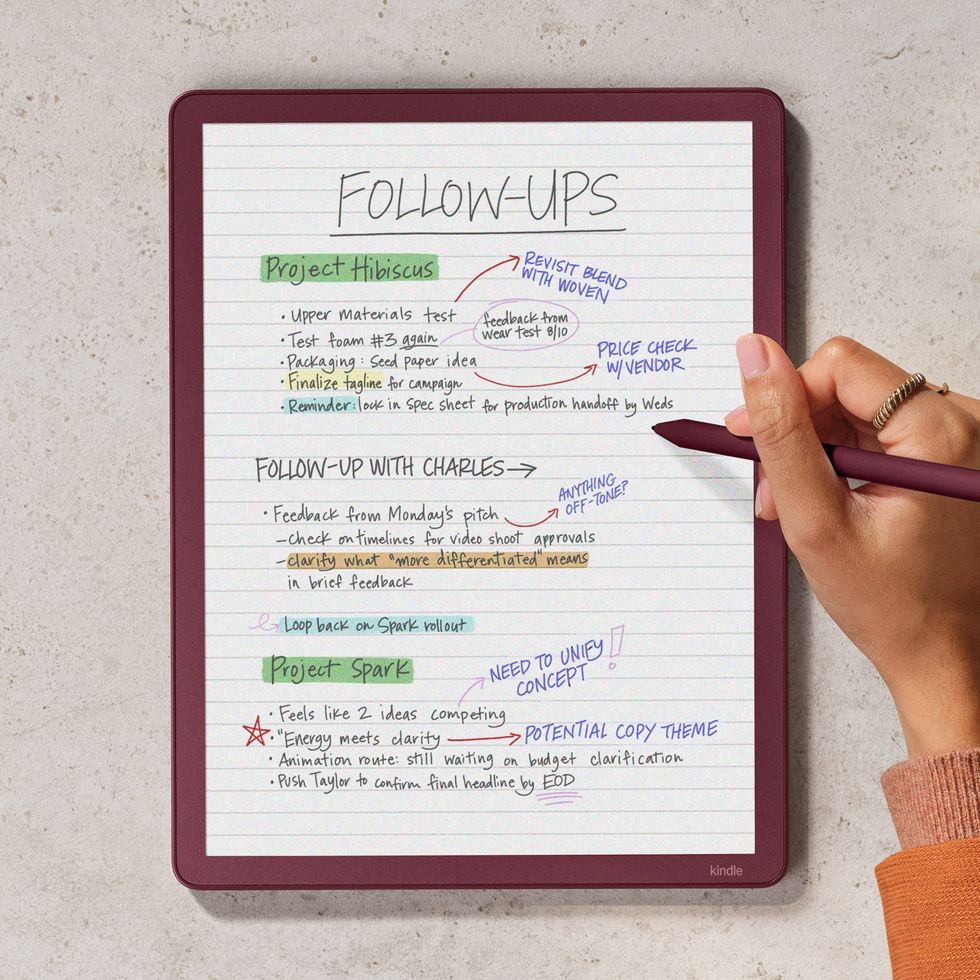 FOLLOW-UPS
Project Hibiscus
REVISIT BLEND
WITH WOVEN
• Upper materials test
• Test foam #3 again
feedback from
wear test 8/10
• Packaging: Seed paper idea
PRICE CHECK
W/VENDOR
• Finalize tagline for campaign
• Reminder: lock in spec sheet for production handoff by Weds
FOLLOW-UP WITH CHARLES→
ANYTHING
OFF-TONE?
• Feedback from Monday's pitch
–check on timelines for video shoot approvals
–clarify what "more differentiated" means
in brief feedback
Loop back on Spark rollout
Project Spark
NEED TO UNIFY
CONCEPT !
• Feels like 2 ideas competing
• "Energy meets clarity
POTENTIAL COPY THEME
• Animation route: still waiting on budget clarification
• Push Taylor to confirm final headline by EOD
kindle